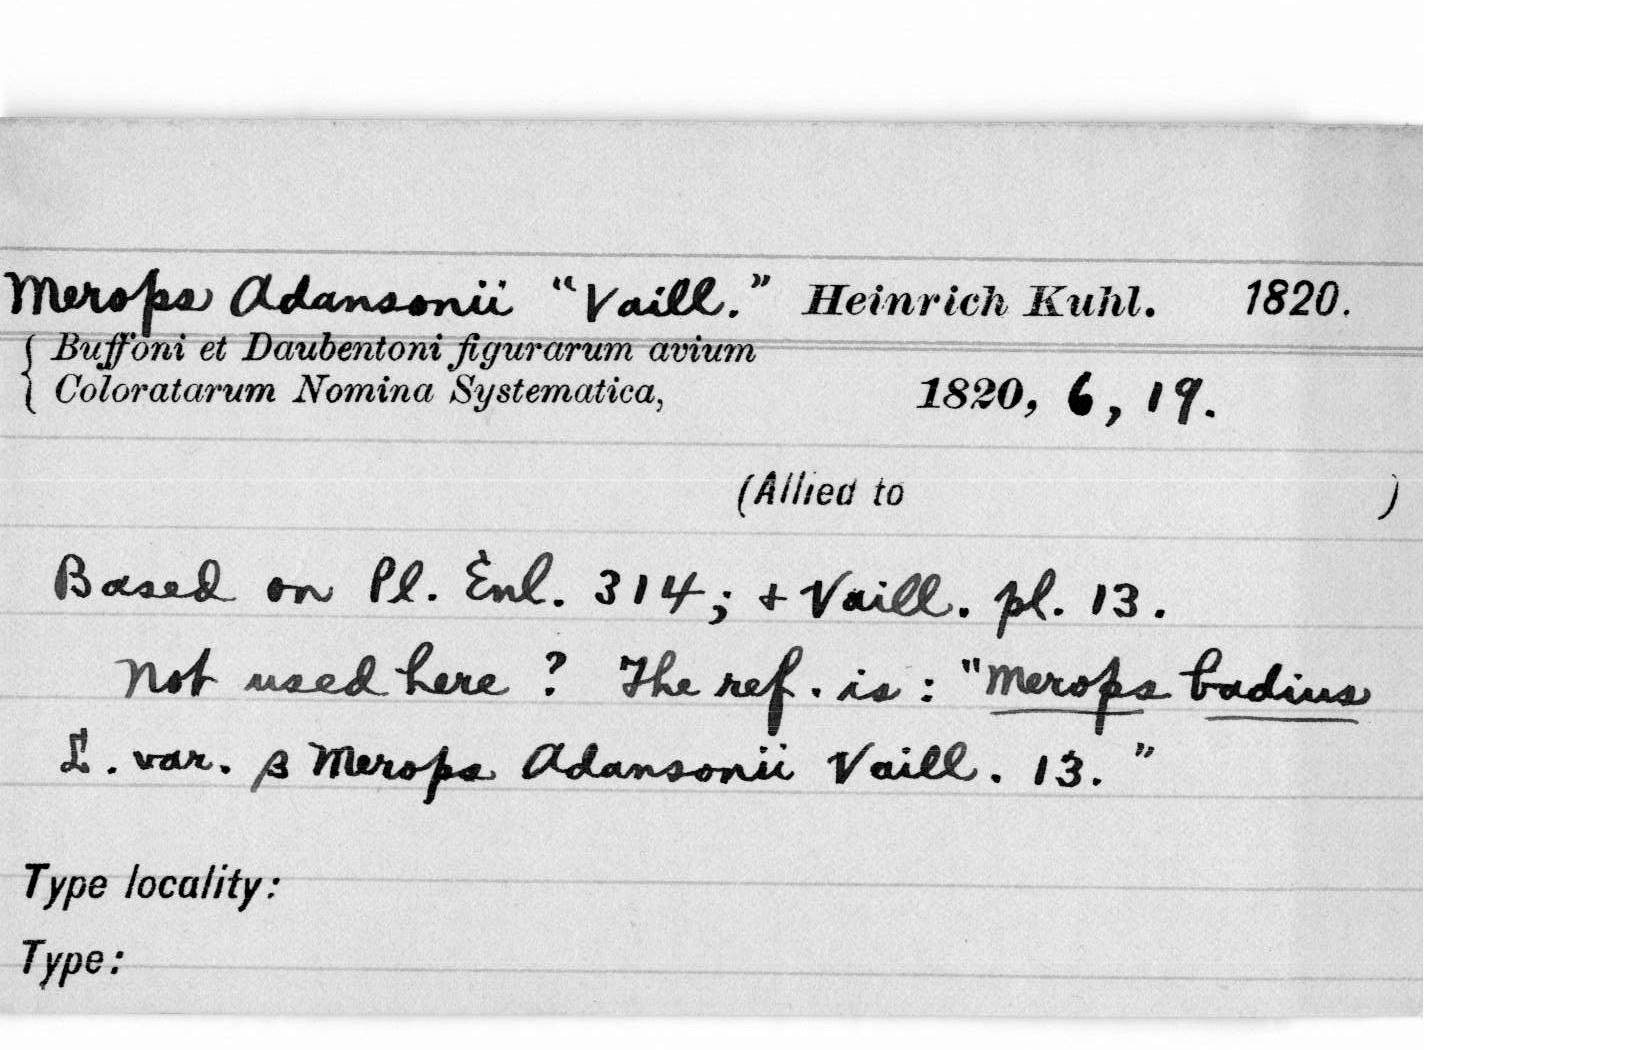 Merops Adansonii "Vaill." Heinrich Kuhl. 1820.
Buffoni et Daubentoni figurarum avium
Coloratarum Nomina Systematica, 1820, 6, 19.
(Allied to )
Based on Pl. Enl. 314; + Vaill. pl. 13.
Not used here? The ref. is: "Merops badius
L. var. β Merops Adansonii Vaill. 13."
Type locality:
Type: